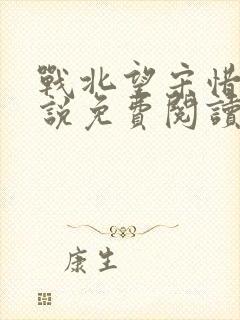 戰北望宋惜
說免費閱讀
康生